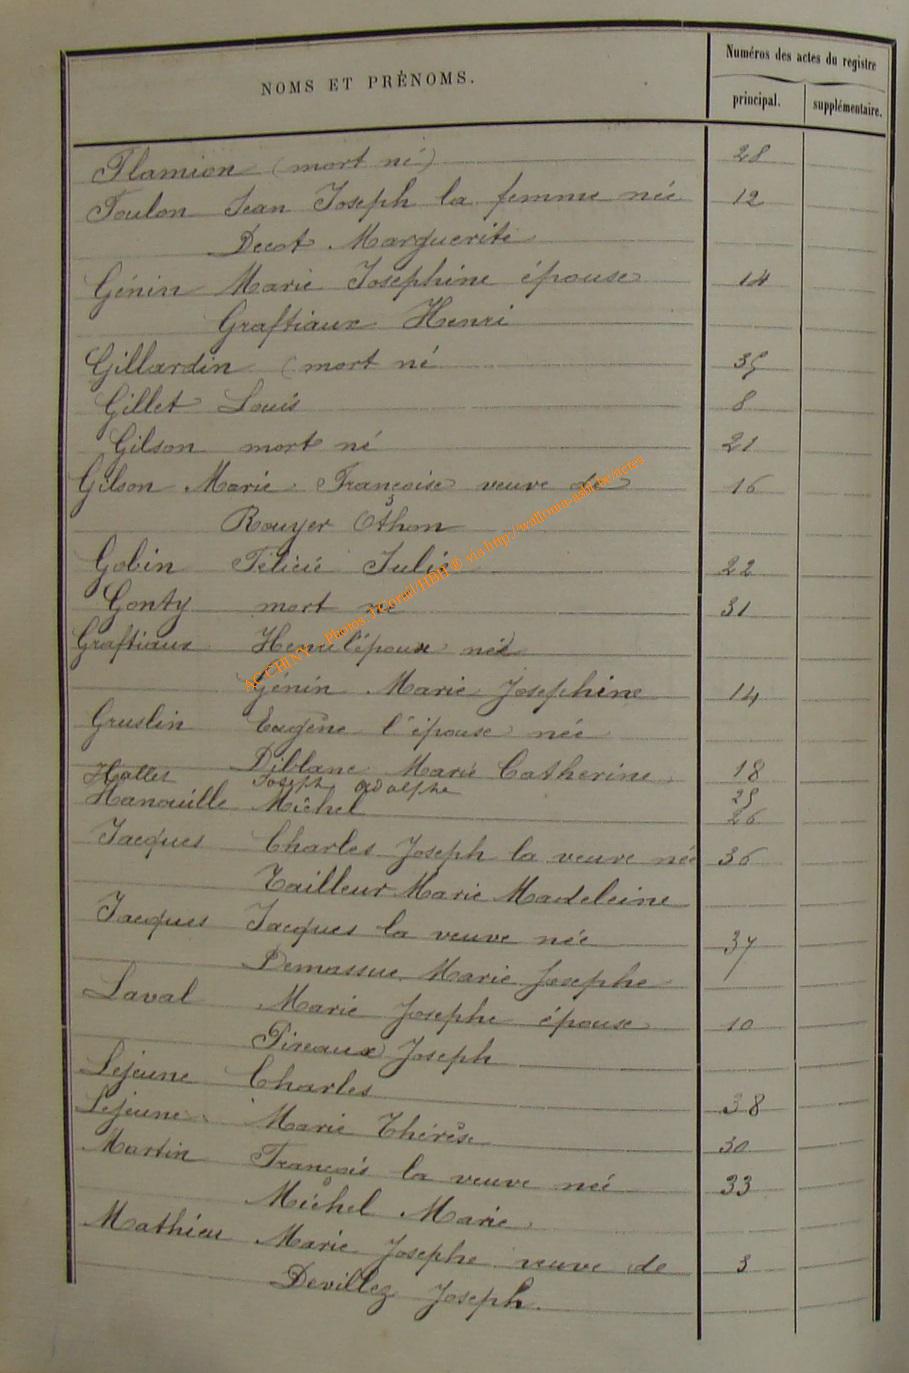 NOMS ET PRÉNOMS.
Numéros des actes du registre
principal. supplémentaire.
Flamion (mort né) 28
Foulon Jean Joseph la femme née 12
Decot Marguerite
Génin Marie Josephine épouse 14
Graftiaux Henri
Gillardin (mort né 35
Gillet Louis 8
Gilson mort né 21
Gilson Marie Françoise veuve de 16
Rouyer Othon
Gobin Félicie Julie 22
Gonty mort né 31
Graftiaux Henri l'époux née
Génin Marie Josephine 14
Gruslin Eugène l'épouse née
Diblanc Marie Catherine 18
Halles Joseph Adolphe 25
Hanouille Michel 26
Jacques Charles Joseph la veuve née 36
Tailleur Marie Madeleine
Jacques Jacques la veuve née 37
Demassue Marie Josephe
Laval Marie Josephe épouse 10
Pireaux Joseph
Lejeune Charles 38
Lejeune Marie Thérèse 30
Martin François la veuve née 33
Michel Marie
Mathieu Marie Josephe veuve de 3
Devillez Joseph.
AC CHINY - Photos J Cornil HBH ® via http://wallonia-asbl.be/actes